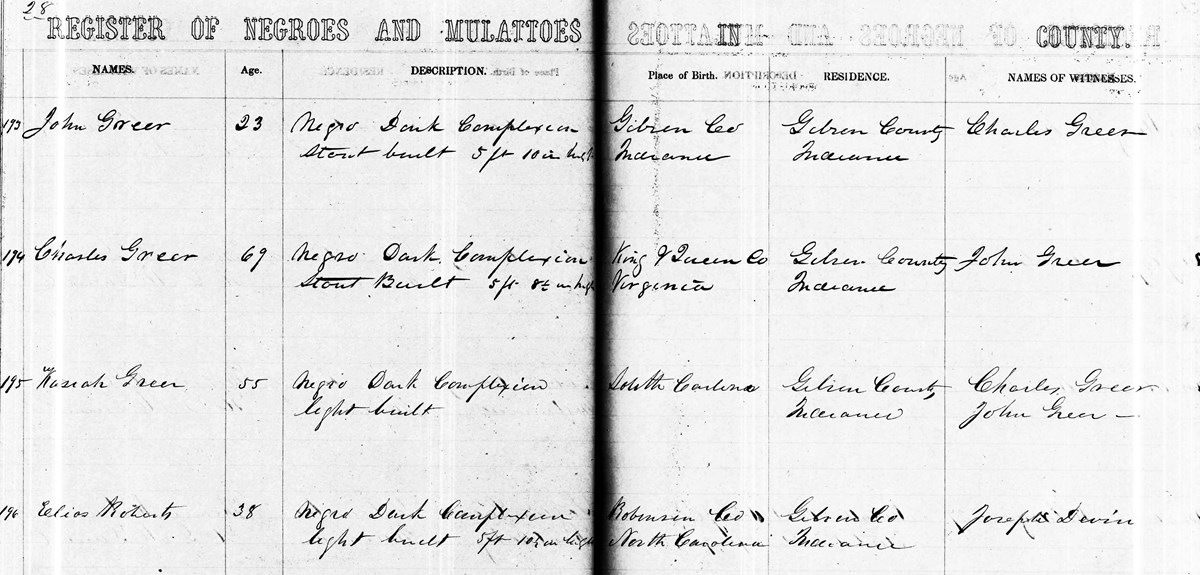 28
REGISTER OF NEGROES AND MULATTOES IN COUNTY.
NAMES. Age. DESCRIPTION. Place of Birth. RESIDENCE. NAMES OF WITNESSES.
193 John Greer 23 Negro Dark Complexion Gibson Co Gibson County Charles Greer
Stout built 5 ft 10 in high Indiana Indiana
194 Charles Greer 69 Negro Dark Complexion King & Queen Co Gibson County John Greer
Stout Built 5 ft 8½ in high Virginia Indiana
195 Keziah Greer 55 Negro Dark Complexion South Carolina Gibson County Charles Greer
light built Indiana John Greer —
196 Elias Roberts 38 Negro Dark Complexion Robenson Co Gibson Co Joseph Devin
light built 5 ft 10½ in high North Carolina Indiana